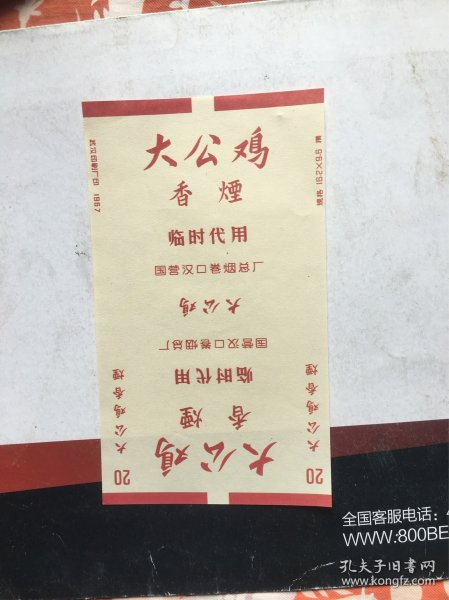 大公鸡
香煙
临时代用
国营汉口卷烟总厂
大公鸡
国营汉口卷烟总厂
临时代用
香煙
大公鸡
武汉印刷厂印 1967
规格 162×96 毫
20 大公鸡香煙
20 大公鸡香煙
全国客服电话：
WWW.800BE
孔夫子旧书网
www.kongfz.com